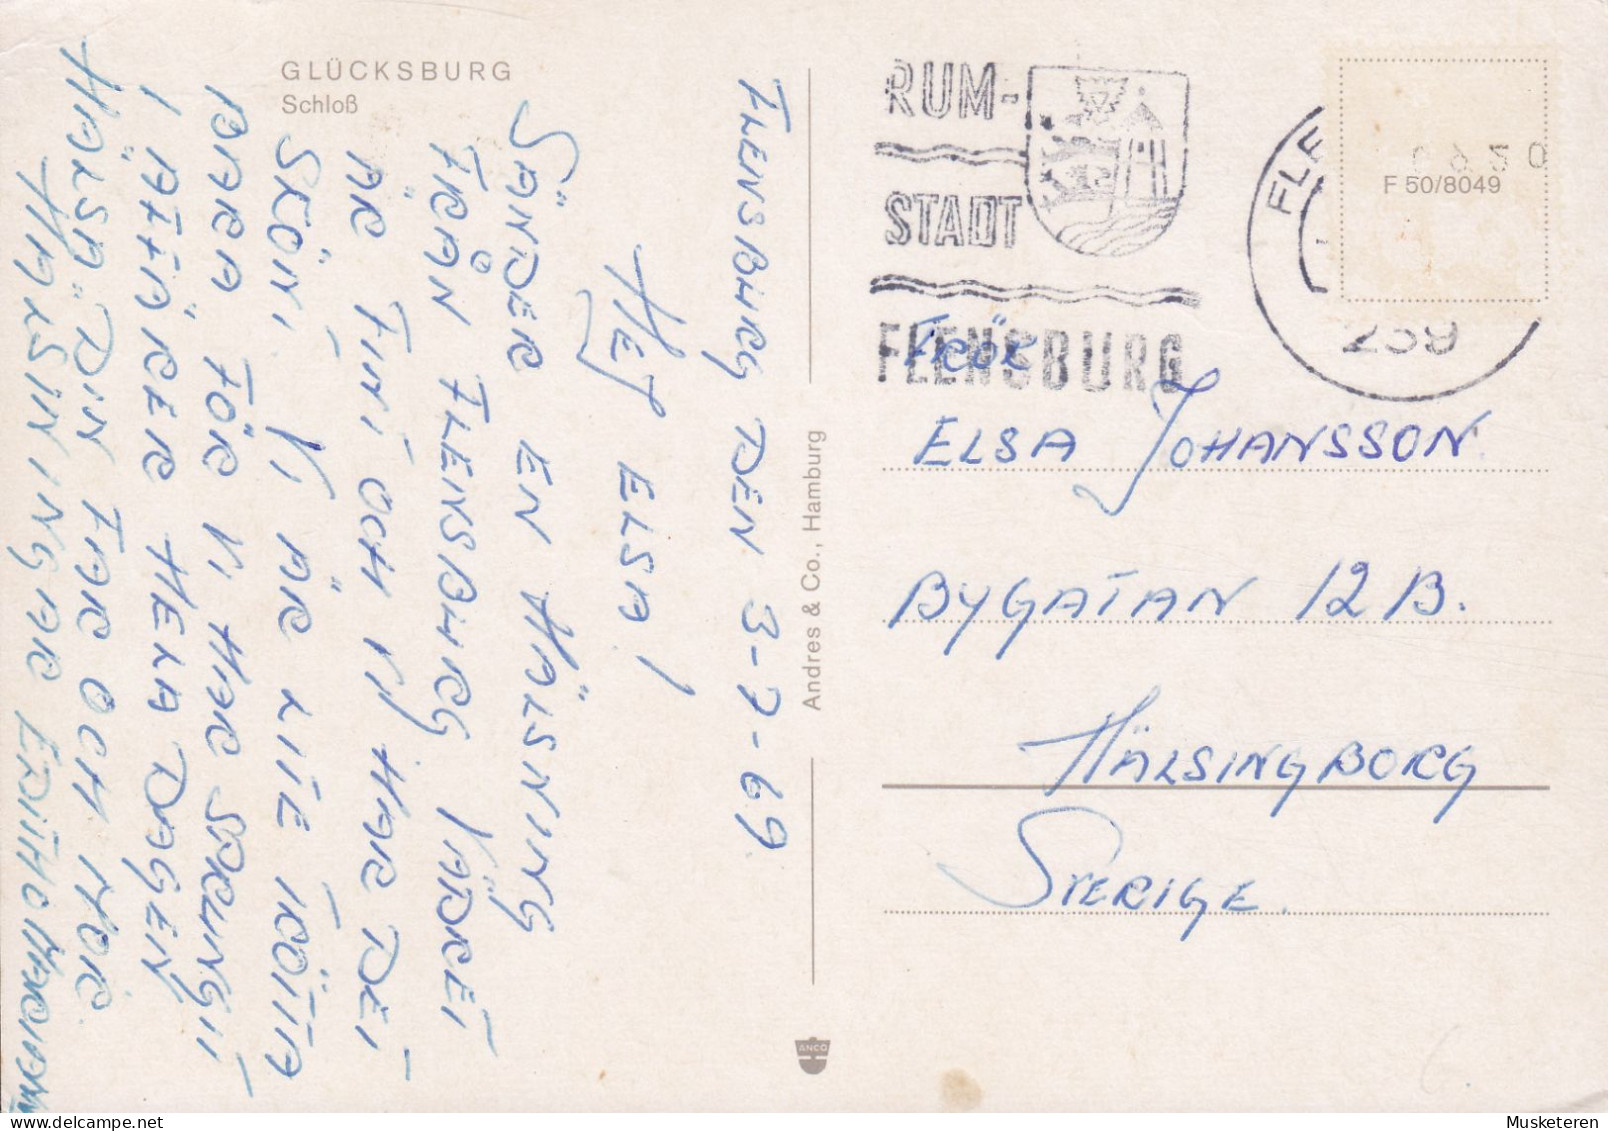 GLÜCKSBURG
Schloß
FLENSBURG DEN 3-7-69
HEJ ELSA!
SÄNDER EN HÄLSNING
FRÅN FLENSBURG VÄDRET
ÄR FINT OCH VI HAR DET
SKÖNT VI ÄR LITE TRÖTTA
BARA FÖR VI HAR SPRUNGIT
I AFFÄRER HELA DAGEN
HÄLSA DIN FAR OCH MOR
HÄLSNINGAR
Andres & Co., Hamburg
ANCO
RUM-
STADT
FLENSBURG
FLE
239
F 50/8049
FRÖK
ELSA JOHANSSON
BYGATAN 12 B.
HÄLSINGBORG
SVERIGE
Musketeren